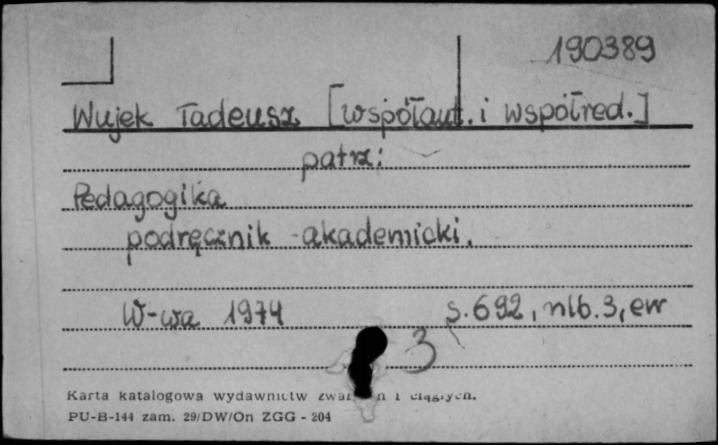 190389
Wujek Tadeusz [współaut. i współred.]
patrz:
Pedagogika
podręcznik akademicki.
W-wa 1974 s. 692, nlb. 3, err
3
Karta katalogowa wydawnictw i ciągłych.
PU-B-144 zam. 29/DW/On ZGG - 204